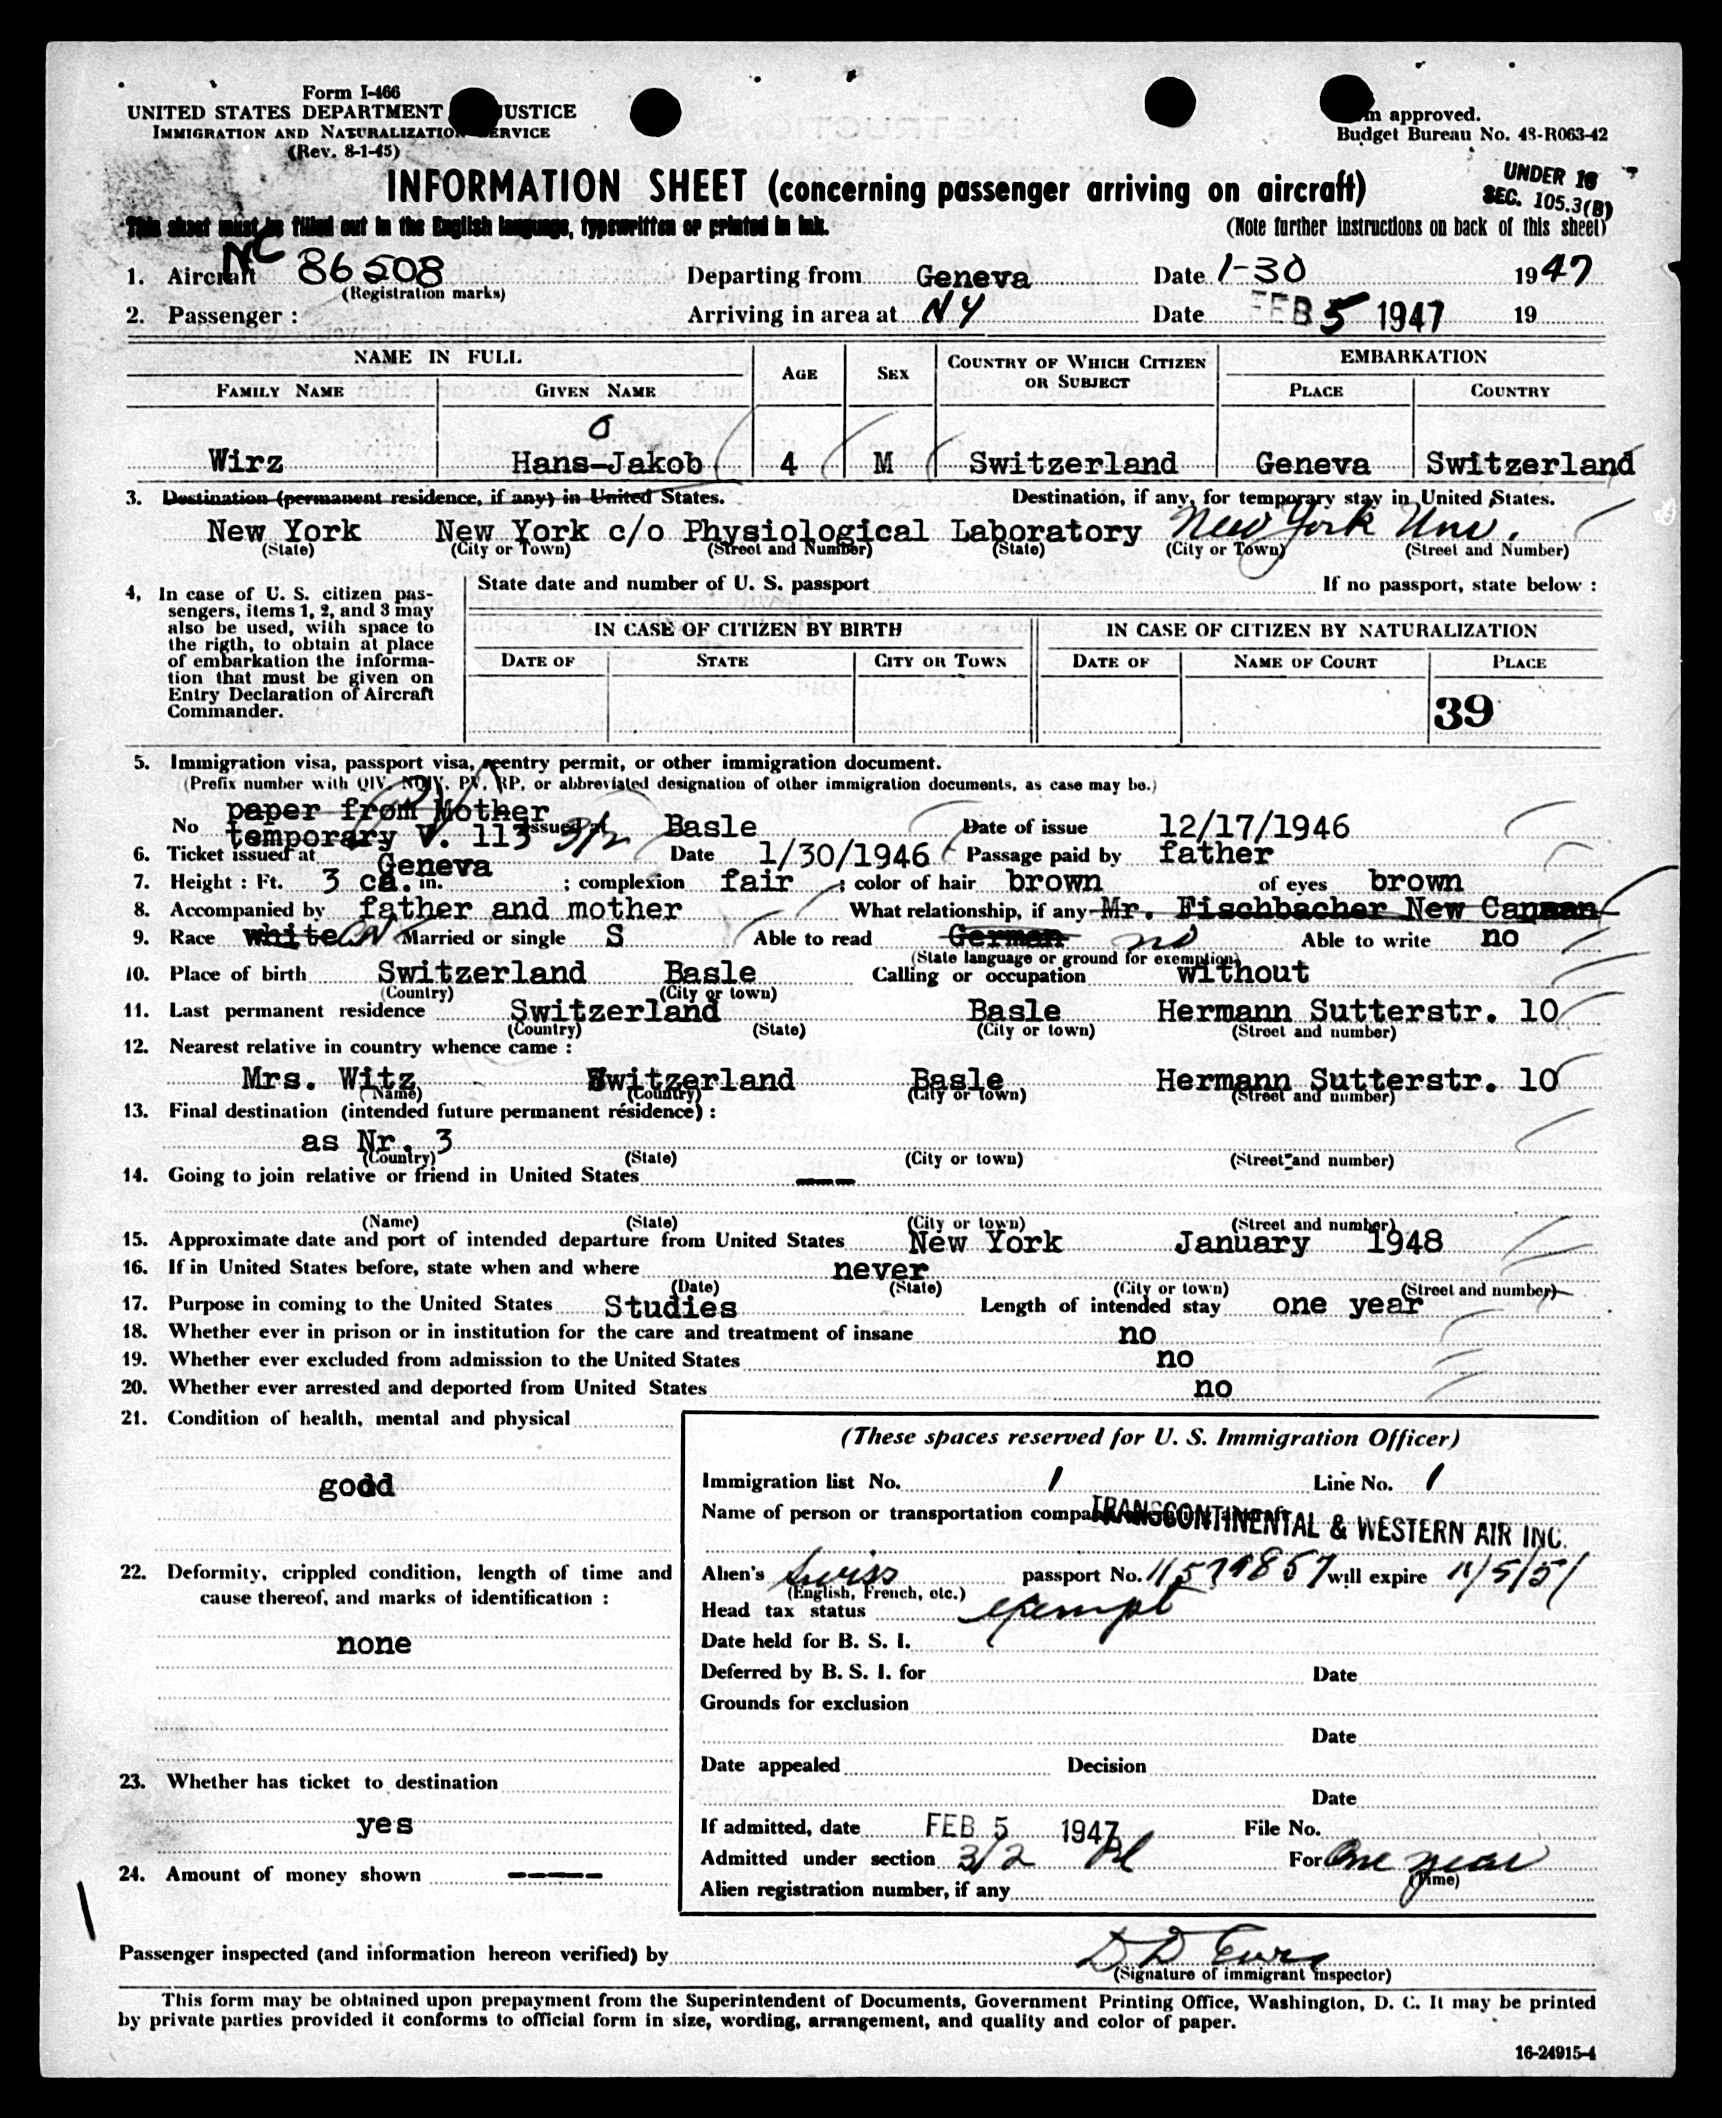 Form I-466
UNITED STATES DEPARTMENT JUSTICE
IMMIGRATION AND NATURALIZATION SERVICE
(Rev. 8-1-45)
approved.
Budget Bureau No. 43-R063-42
UNDER 16
SEC. 105.3(B)
INFORMATION SHEET (concerning passenger arriving on aircraft)
This sheet must be filled out in the English language, typewritten or printed in ink.
(Note further instructions on back of this sheet)
1. Aircraft NC 86508 Departing from Geneva Date 1-30 1947
(Registration marks)
2. Passenger : Arriving in area at NY Date FEB 5 1947 19
NAME IN FULL AGE SEX COUNTRY OF WHICH CITIZEN OR SUBJECT EMBARKATION
FAMILY NAME GIVEN NAME PLACE COUNTRY
Wirz Hans-Jakob 4 M Switzerland Geneva Switzerland
3. Destination (permanent residence, if any) in United States. Destination, if any, for temporary stay in United States.
New York New York c/o Physiological Laboratory New York Uni.
(State) (City or Town) (Street and Number) (State) (City or Town) (Street and Number)
4, In case of U. S. citizen pas- State date and number of U. S. passport If no passport, state below :
sengers, items 1, 2, and 3 may
also be used, with space to IN CASE OF CITIZEN BY BIRTH IN CASE OF CITIZEN BY NATURALIZATION
the rigth, to obtain at place
of embarkation the informa- DATE OF STATE CITY OR TOWN DATE OF NAME OF COURT PLACE
tion that must be given on
Entry Declaration of Aircraft
Commander. 39
5. Immigration visa, passport visa, reentry permit, or other immigration document.
(Prefix number with QIV, NQIV, PV, RP, or abbreviated designation of other immigration documents, as case may be.)
paper from Mother
No temporary V. 113 issued at 3/2 Basle Date of issue 12/17/1946
6. Ticket issued at Geneva Date 1/30/1946 Passage paid by father
7. Height : Ft. 3 ca. in. ; complexion fair ; color of hair brown of eyes brown
8. Accompanied by father and mother What relationship, if any Mr. Fischbacher New Canaan
9. Race white Married or single S Able to read German no Able to write no
(State language or ground for exemption)
10. Place of birth Switzerland Basle Calling or occupation without
(Country) (City or town)
11. Last permanent residence Switzerland Basle Hermann Sutterstr. 10
(Country) (State) (City or town) (Street and number)
12. Nearest relative in country whence came :
Mrs. Witz Switzerland Basle Hermann Sutterstr. 10
(Name) (Country) (City or town) (Street and number)
13. Final destination (intended future permanent résidence) :
as Nr. 3
(Country) (State) (City or town) (Street and number)
14. Going to join relative or friend in United States ---
(Name) (State) (City or town) (Street and number)
15. Approximate date and port of intended departure from United States New York January 1948
16. If in United States before, state when and where never
(Date) (State) (City or town) (Street and number)
17. Purpose in coming to the United States Studies Length of intended stay one year
18. Whether ever in prison or in institution for the care and treatment of insane no
19. Whether ever excluded from admission to the United States no
20. Whether ever arrested and deported from United States no
21. Condition of health, mental and physical
good
22. Deformity, crippled condition, length of time and
cause thereof, and marks of identification :
none
23. Whether has ticket to destination
yes
24. Amount of money shown -----
(These spaces reserved for U. S. Immigration Officer)
Immigration list No. 1 Line No. 1
Name of person or transportation TRANSCONTINENTAL & WESTERN AIR INC.
Alien's Swiss passport No. 11579857 will expire 11/5/51
(English, French, etc.)
Head tax status exempt
Date held for B. S. I.
Deferred by B. S. I. for Date
Grounds for exclusion
Date
Date appealed Decision
Date
If admitted, date FEB 5 1947 File No.
Admitted under section 3/2 For One year
(Time)
Alien registration number, if any
Passenger inspected (and information hereon verified) by
(Signature of immigrant inspector)
This form may be obtained upon prepayment from the Superintendent of Documents, Government Printing Office, Washington, D. C. It may be printed
by private parties provided it conforms to official form in size, wording, arrangement, and quality and color of paper.
16-24915-4